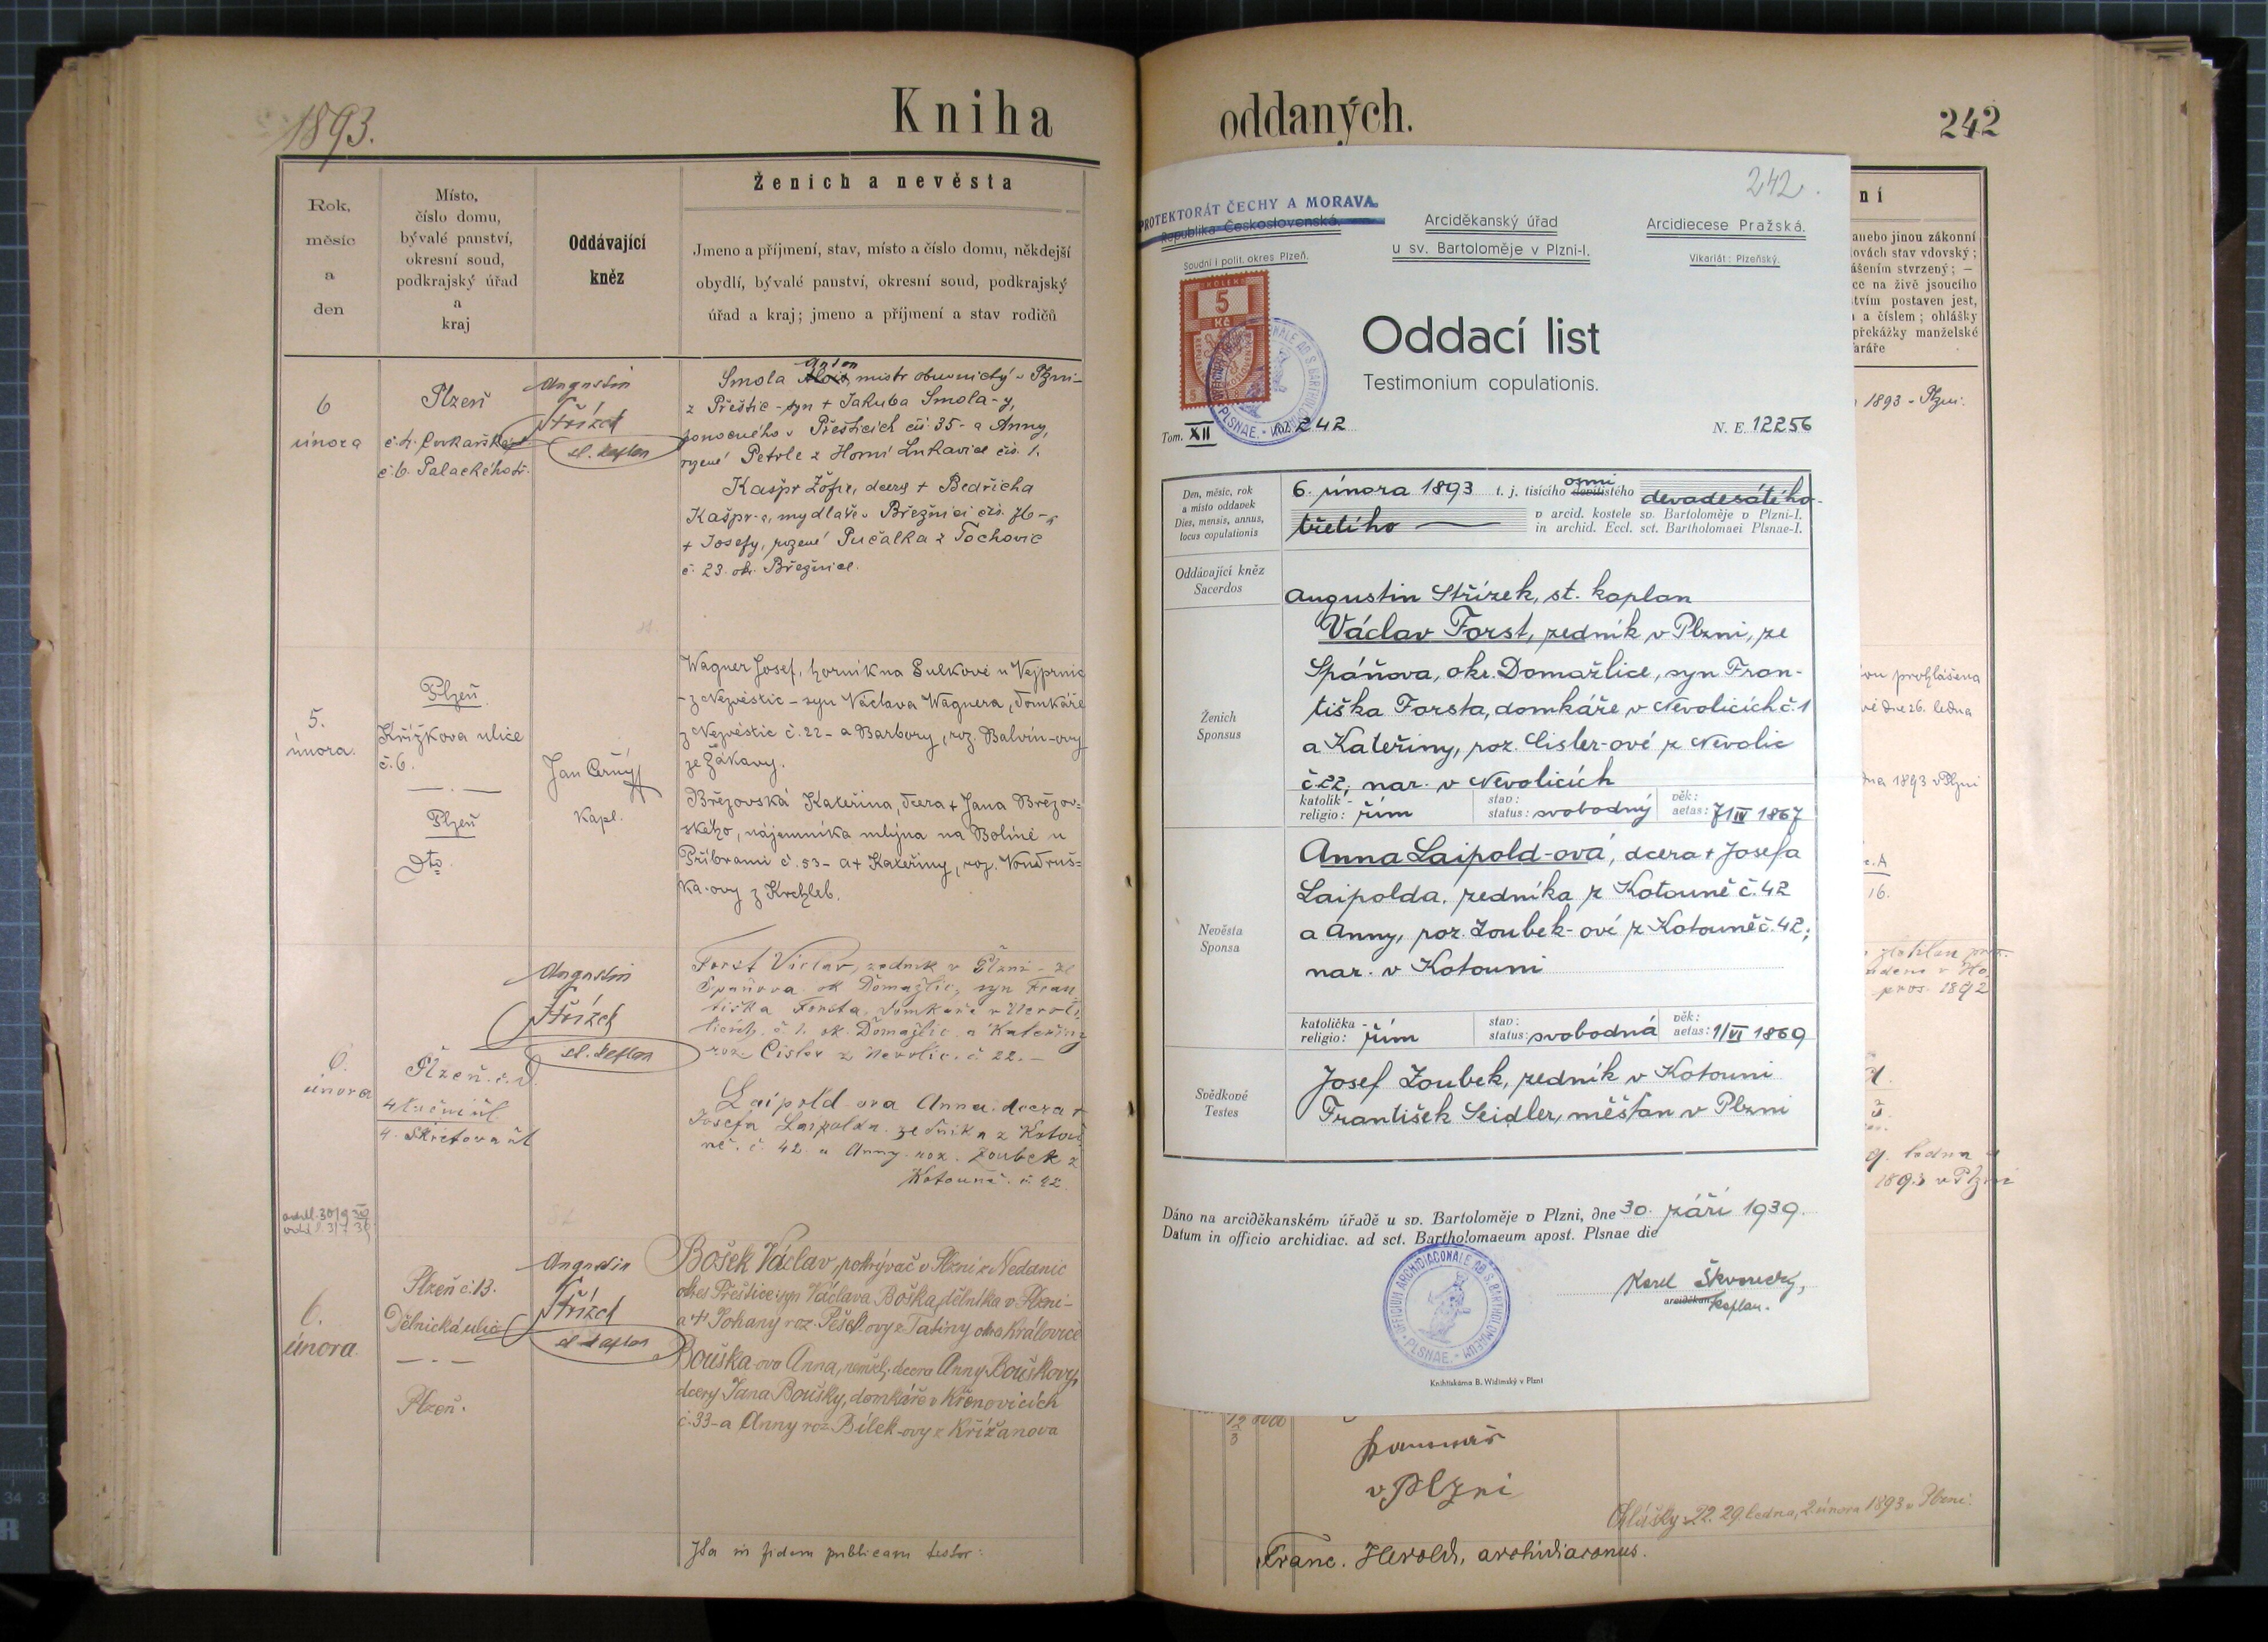 1893.
Kniha
Rok,
měsíc
a
den
Místo,
číslo domu,
bývalé panství,
okresní soud,
podkrajský úřad
a
kraj
Oddávající
kněz
Ženich a nevěsta
Jmeno a příjmení, stav, místo a číslo domu, někdejší
obydlí, bývalé panství, okresní soud, podkrajský
úřad a kraj; jmeno a příjmení a stav rodičů
6
února
Plzeň
č. 6. Palackého tř.
Augustin
Střízek
st. kaplan
Anton
Smola Alois, mistr obuvnický v Plzni-
z Přeštic - syn + Jakuba Smola-y,
ponocného v Přešticích čís 35 - a Anny,
rozené Petrle z Horní Lukavice čís. 1.
Kašpr Žofie, dcera + Bedřicha
Kašpr-a, mydláře v Březnici čís. 76 -
+ Josefy, rozené Pučalka z Tochovic
č. 23. okr. Březnice.
5.
února.
Plzeň
Křížkova ulice
č. 6.
Plzeň
Dto.
Jan Černý
kapl.
Wagner Josef, horník na Sulkově u Vejprnic
- z Nezvěstic - syn Václava Wagnera, domkáře
z Nezvěstic č. 22 - a Barbory, roz. Balvín-ovy
ze Žákavy.
Březovská Kateřina, dcera + Jana Březov-
ského, nájemníka mlýna na Bolině u
Příbrami č. 53 - a + Kateřiny, roz. Vondruš-
ka-ovy z Krchleb.
6.
února
Plzeň. č. d.
4 Škrétova ul
Augustin
Střízek
st. kaplan
Forst Václav, zedník v Plzni - ze
Spáňova ok Domažlic, syn Fran
tiška Forsta, domkáře v Nevoli
cích. č. 1. ok. Domažlic a Kateřiny
roz. Cisler z Nevolic. č 22. -
Laipold-ova Anna. dcera +
Josefa Laipolda. zedníka z Kotou
ně. č. 42. a Anny. roz. Zoubek z
Kotouně. č. 42.
6.
února
Plzeň č. 13.
Dělnická ulic
Plzeň.
Augustin
Střízek
st. kaplan
Bošek Václav, pokrývač v Plzni z Nedanic
okres Přeštice, syn Václava Boška, dělníka v Plzni -
a + Johany roz. Pešek ovy z Tatiny okr. Kralovice
Bouška-ova Anna, nemžl. dcera Anny Bouškovy,
dcery Jana Boušky, domkáře v Křenovicích
č. 33 - a Anny roz. Bílek-ovy z Křižanova
Ita in fidem publicam testor:
oddaných.
242
ní
anebo jinou zákonní
lovách stav vdovský;
ášením stvrzený; —
ce na živě jsoucího
tvím postaven jest,
a číslem; ohlášky
překážky manželské
faráře
1893 - Plzni.
ou prohlášena
vé dne 26. ledna
dna 1893 v Plzni
16.
pros. 1892
ledna
1893 v Plzni
242.
PROTEKTORÁT ČECHY A MORAVA.
Republika Československá.
Soudní i polit. okres Plzeň.
Arciděkanský úřad
u sv. Bartoloměje v Plzni-I.
Arcidiecese Pražská.
Vikariát: Plzeňský.
KOLEK
5
Kč
Oddací list
Testimonium copulationis.
Tom. XII
242
N. E. 12256
Den, měsíc, rok
a místo oddavek
Dies, mensis, annus,
locus copulationis
6. února 1893 t. j. tisícího osmi devítistého devadesátého-
třetího
v arcid. kostele sv. Bartoloměje v Plzni-I.
in archid. Eccl. sct. Bartholomaei Plsnae-I.
Oddávající kněz
Sacerdos
Augustin Střízek, st. kaplan
Ženich
Sponsus
Václav Forst, zedník v Plzni, ze
Spáňova, okr. Domažlice, syn Fran-
tiška Forsta, domkáře v Nevolicích č. 1
a Kateřiny, roz. Cisler-ové z Nevolic
č. 22; nar. v Nevolicích
katolík -
religio: řím
stav:
status: svobodný
věk:
aetas: 7/IV 1867
Nevěsta
Sponsa
Anna Laipold-ová, dcera + Josefa
Laipolda, zedníka z Kotouně č. 42
a Anny, roz. Zoubek-ové z Kotouně č. 42;
nar. v Kotouni
katolička -
religio: řím
stav:
status: svobodná
věk:
aetas: 1/VI 1869
Svědkové
Testes
Josef Zoubek, zedník v Kotouni
František Seidler, měšťan v Plzni
Dáno na arciděkanském úřadě u sv. Bartoloměje v Plzni, dne 30. září 1939.
Datum in officio archidiac. ad sct. Bartholomaeum apost. Plsnae die
OFFICIUM ARCHIDIACONALE AD S. BARTHOLOMAEUM
PLSNAE.
Karel Škvorecký,
arciděkan kaplan.
Knihtiskárna B. Widimský v Plzni
v Plzni
Ohlášky 22. 29. ledna, 2. února 1893 v Plzni.
Franc. Herold, archidiaconus.